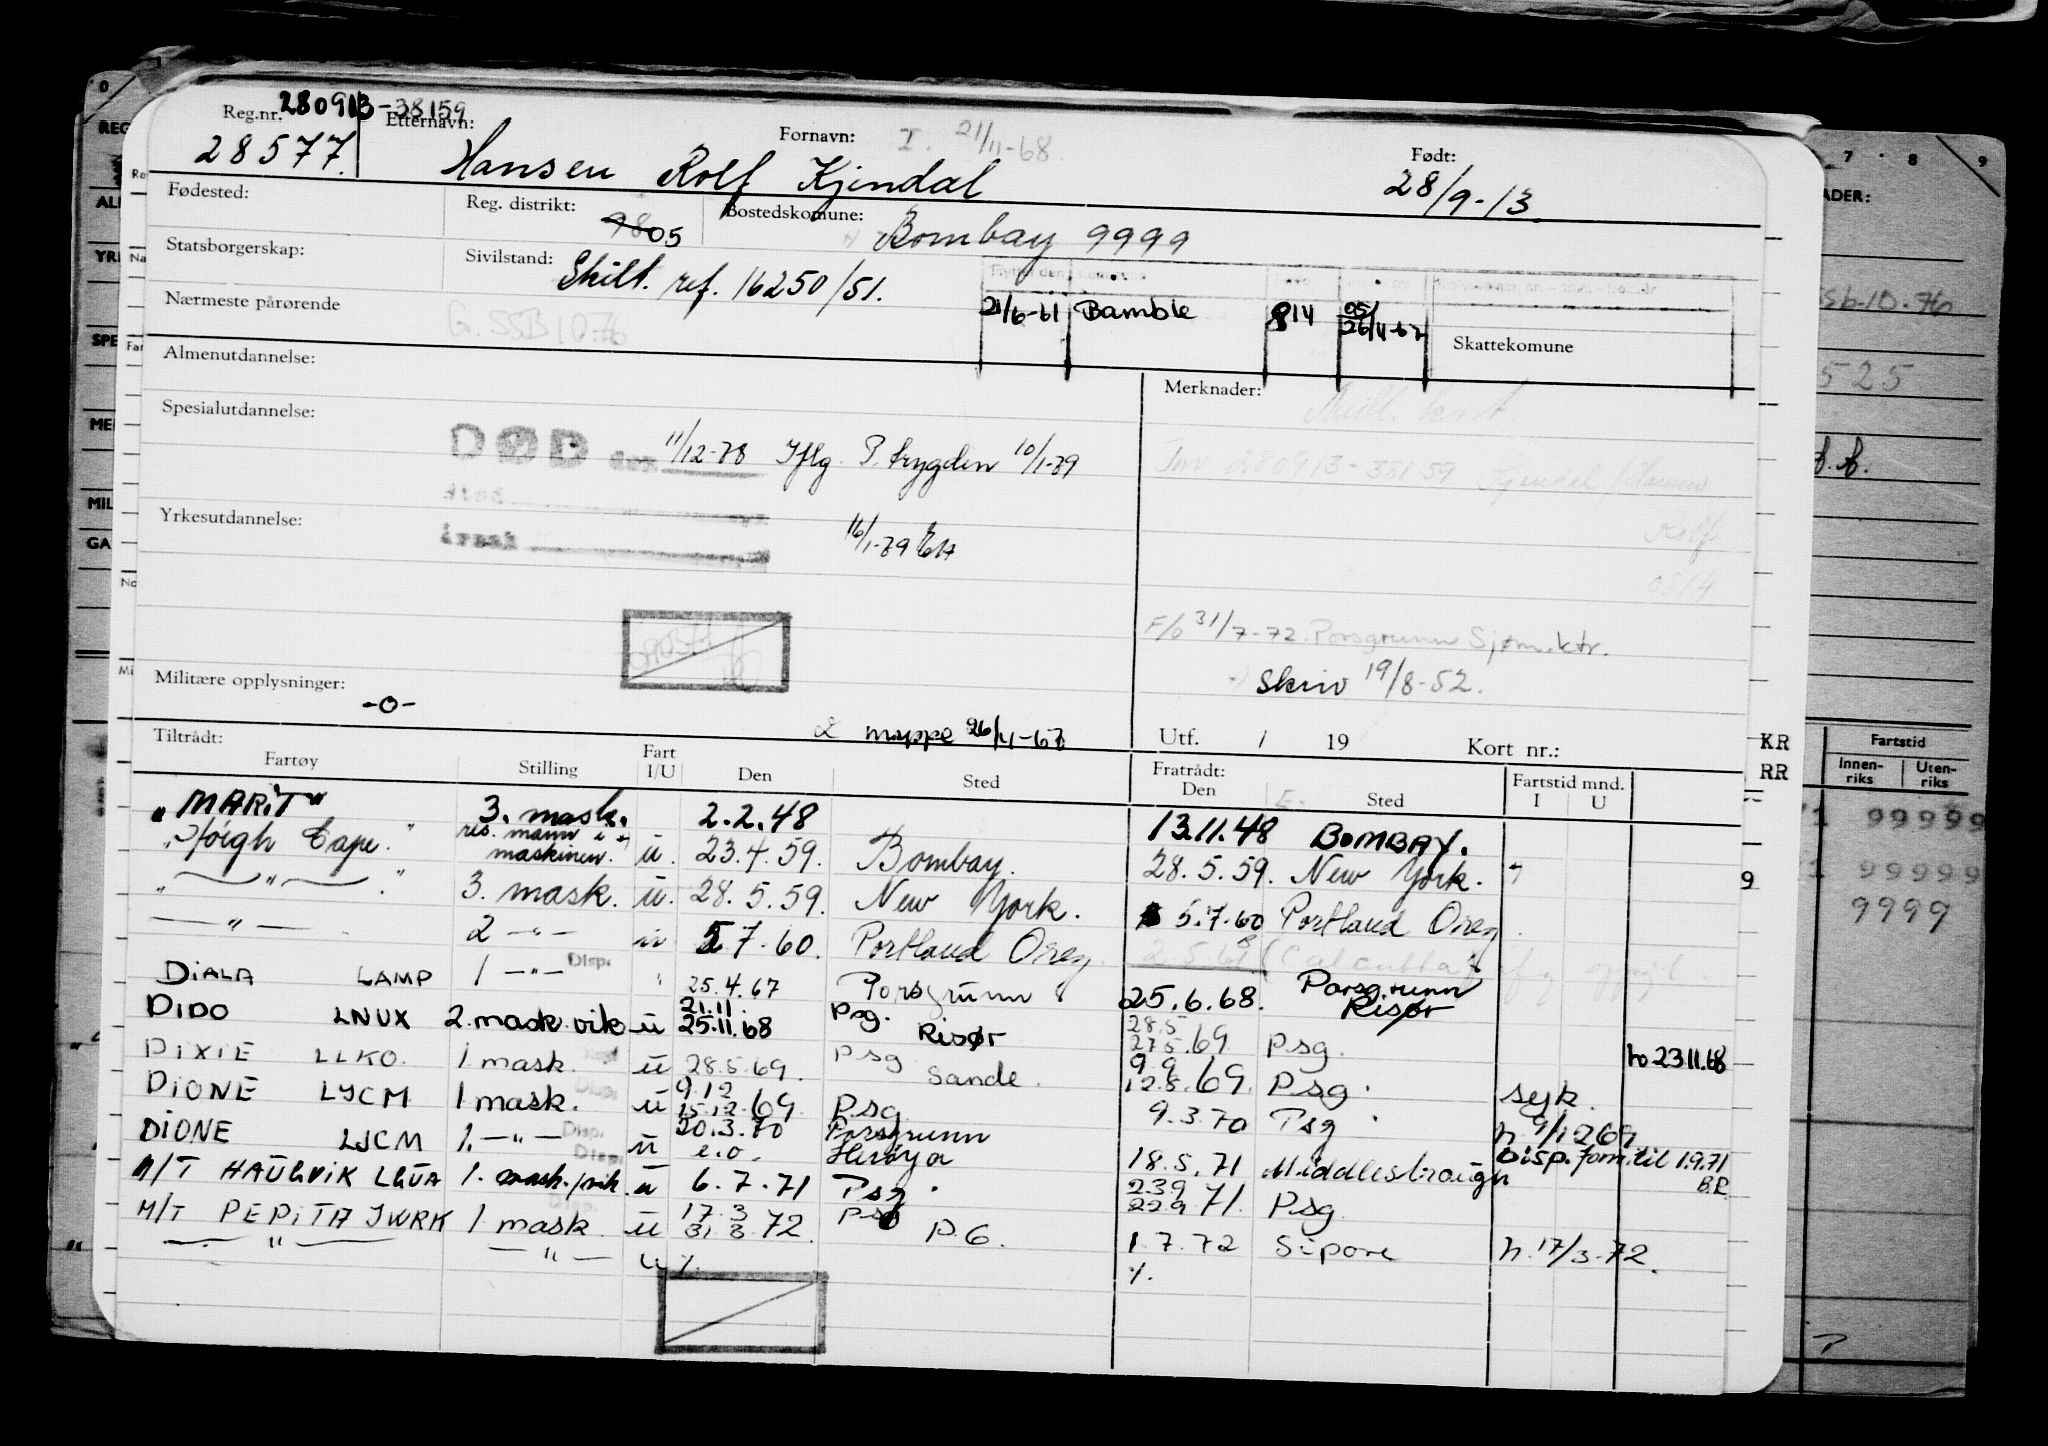 280913-38159
Reg.nr. Etternavn: Fornavn: I. 21/11-68 Født:
28577. Hansen Rolf Kjendal 28/9-13.
Fødested: Reg. distrikt: 9805 Bostedskomune: Bombay 9999
Statsborgerskap: Sivilstand: Skilt. ref. 16250/51.
21/6-61 Bamble 814 05/ 26/4-67
Nærmeste pårørende G. SSB 10.76
Skattekomune
Almenutdannelse: Merknader:
Spesialutdannelse:
DØD den 11/12-78 Iflg. P. trygden 10/1-79
Inv 280913-38159 Kjendal Hansen
Sted
Rolf
Yrkesutdannelse: årsak 16/1-79
0814
F/o 31/7-72. Porsgrunn Sjøm.ktr.
Militære opplysninger: -o- Skriv 19/8-52.
mappe 26/4-67 Utf. / 19 Kort nr.:
Tiltrådt: Fratrådt: Fartstid mnd.
Fartøy Stilling Fart I/U Den Sted Den Sted I U
"MARIT" 3. mask. 2.2.48 13.11.48 BOMBAY.
"Høegh Cape." res. mann i maskinen. u. 23.4.59. Bombay. 28.5.59. New York.
" — " — ." 3. mask. u. 28.5.59. New York. 5.7.60 Portland Oreg.
— " — 2 — " — u 5.7.60. Portland Oreg. 2.5.61 (Calcutta)
DIALA LAMP 1 — " — Disp. " 25.4.67 Porsgrunn 25.6.68. Porsgrunn Risør
DIDO LNUX 2. mask. vik u 21.11. 25.11.68 Psg. Risør 28.5 27.5.69 Psg. h 23.11.68
DIXIE LLKO. 1 mask. u 28.5.69. Psg Sande. 9.9 12.8.69. Psg. syk.
DIONE LJCM 1 mask. Disp. u 9.12 15.12.69. Psg 9.3.70 Psg. h 9/12 69
DIONE LJCM 1. — " — Disp. u 20.3.70 e.o. Porsgrunn Herøya 18.5.71 Middlesbrough Disp. fom. til 1.9.71 B.R
M/T HAUGVIK LGUA 1. mask./vik. Disp. u 6.7.71 Psg. 23.9 22.9 71. Psg.
M/T PEPITA JWRK 1 mask. u 17.3 31.3.72. Psg P.G. 1.7.72 S:pore h. 17/3-72.
— " — — " — u %. %.
KR
RR
ADER:
SSb-10-76
525
Fartstid
Innen-riks Uten-riks
99999
99999
9999